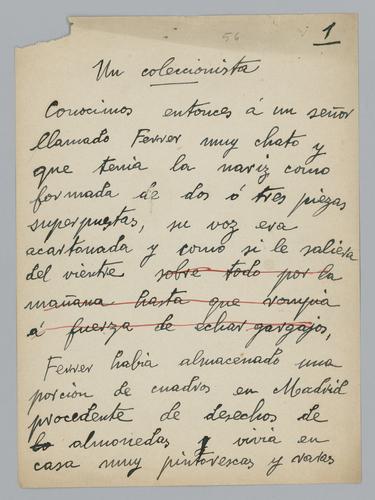 56
1
Un coleccionista
Conocimos entonces á un señor
llamado Ferrer muy chato y
que tenia la nariz como
formada de dos ó tres piezas
superpuestas, su voz era
acartonada y como si le saliera
del vientre sobre todo por la
mañana hasta que rompia
á fuerza de echar gargajos,
Ferrer habia almacenado una
porcion de cuadros en Madrid
procedente de desechos de
lo almonedas y vivia en
casa muy pintorescas y raras